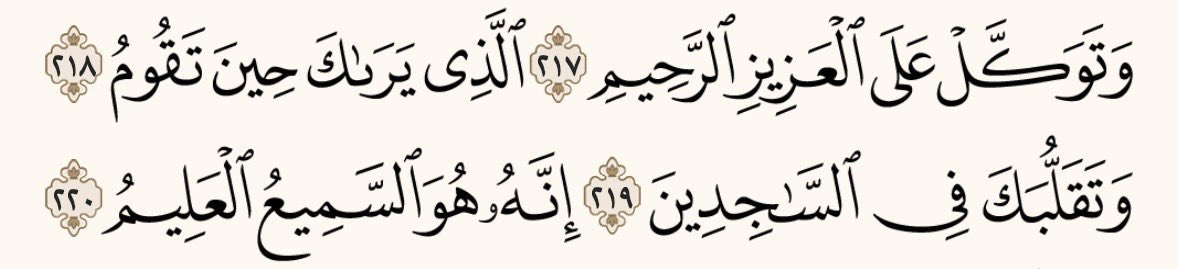 وَتَوَكَّلْ عَلَى ٱلْعَزِيزِ ٱلرَّحِيمِ ٢١٧ ٱلَّذِى يَرَىٰكَ حِينَ تَقُومُ ٢١٨
وَتَقَلُّبَكَ فِى ٱلسَّـٰجِدِينَ ٢١٩ إِنَّهُۥ هُوَ ٱلسَّمِيعُ ٱلْعَلِيمُ ٢٢٠